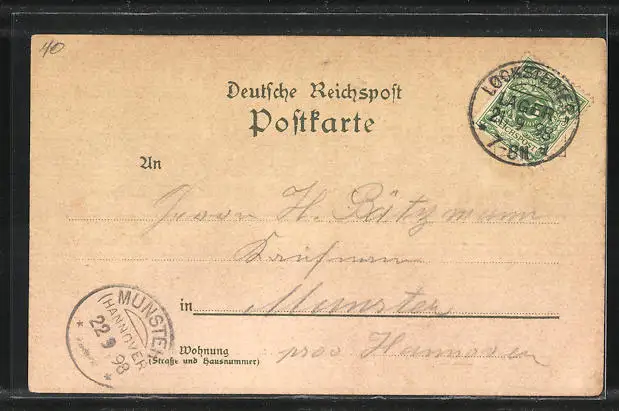 40
Deutsche Reichspost
Postkarte
LOCKSTEDTER
LAGER
98
7-8N.
An
Herrn H. Bätzmann
Kaufmann
in Munster
MUNSTER
(HANNOVER)
22 9 98
Wohnung
(Straße und Hausnummer)
prov Hannover